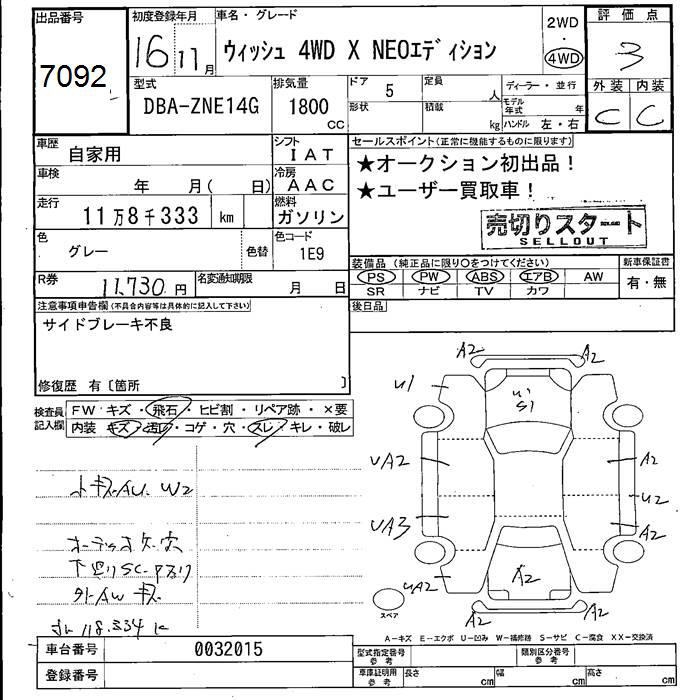 出品番号
7092
初度登録年月
16 11月
車名・グレード
ウィッシュ 4WD X NEOエディション
2WD
・
4WD
評価点
3
型式
DBA-ZNE14G
排気量
1800
CC
ドア
5
定員
人
形状
積載
kg
ディーラー・並行
モデル年式
年
ハンドル 左・右
外装 内装
C C
車歴
自家用
シフト
IAT
車検
年 月( 日)
冷房
AAC
走行
11万8千333 km
燃料
ガソリン
色
グレー
色替
色コード
1E9
R券
11,730円
名変通知期限
月 日
セールスポイント(正常に機能するものに限ります)
★オークション初出品!
★ユーザー買取車!
売切りスタート
SELLOUT
装備品(純正品に限り○をつけてください)
新車保証書
PS PW ABS エアB AW
有・無
SR ナビ TV カワ
後日品
注意事項申告欄(不具合内容等は具体的に記入して下さい)
サイドブレーキ不良
修復歴 有〔箇所 〕
検査員記入欄
FW キズ・飛石・ヒビ割・リペア跡・×要
内装 キズ・汚れ・コゲ・穴・スレ・キレ・破レ
キズAU W2
下廻りSC.Pスリ
外AW キズ
118.334k
A2 A2
U1
U1
S1
UA2
A2
U2
UA3
A2
A2
UA2
A2
A2
スペア
A-キズ E-エクボ U-凹み W-補修跡 S-サビ C-腐食 XX-交換済
車台番号
0032015
登録番号
型式指定番号
参考
類別区分番号
参考
車庫証明用
参考
長さ
cm
幅
cm
高さ
cm